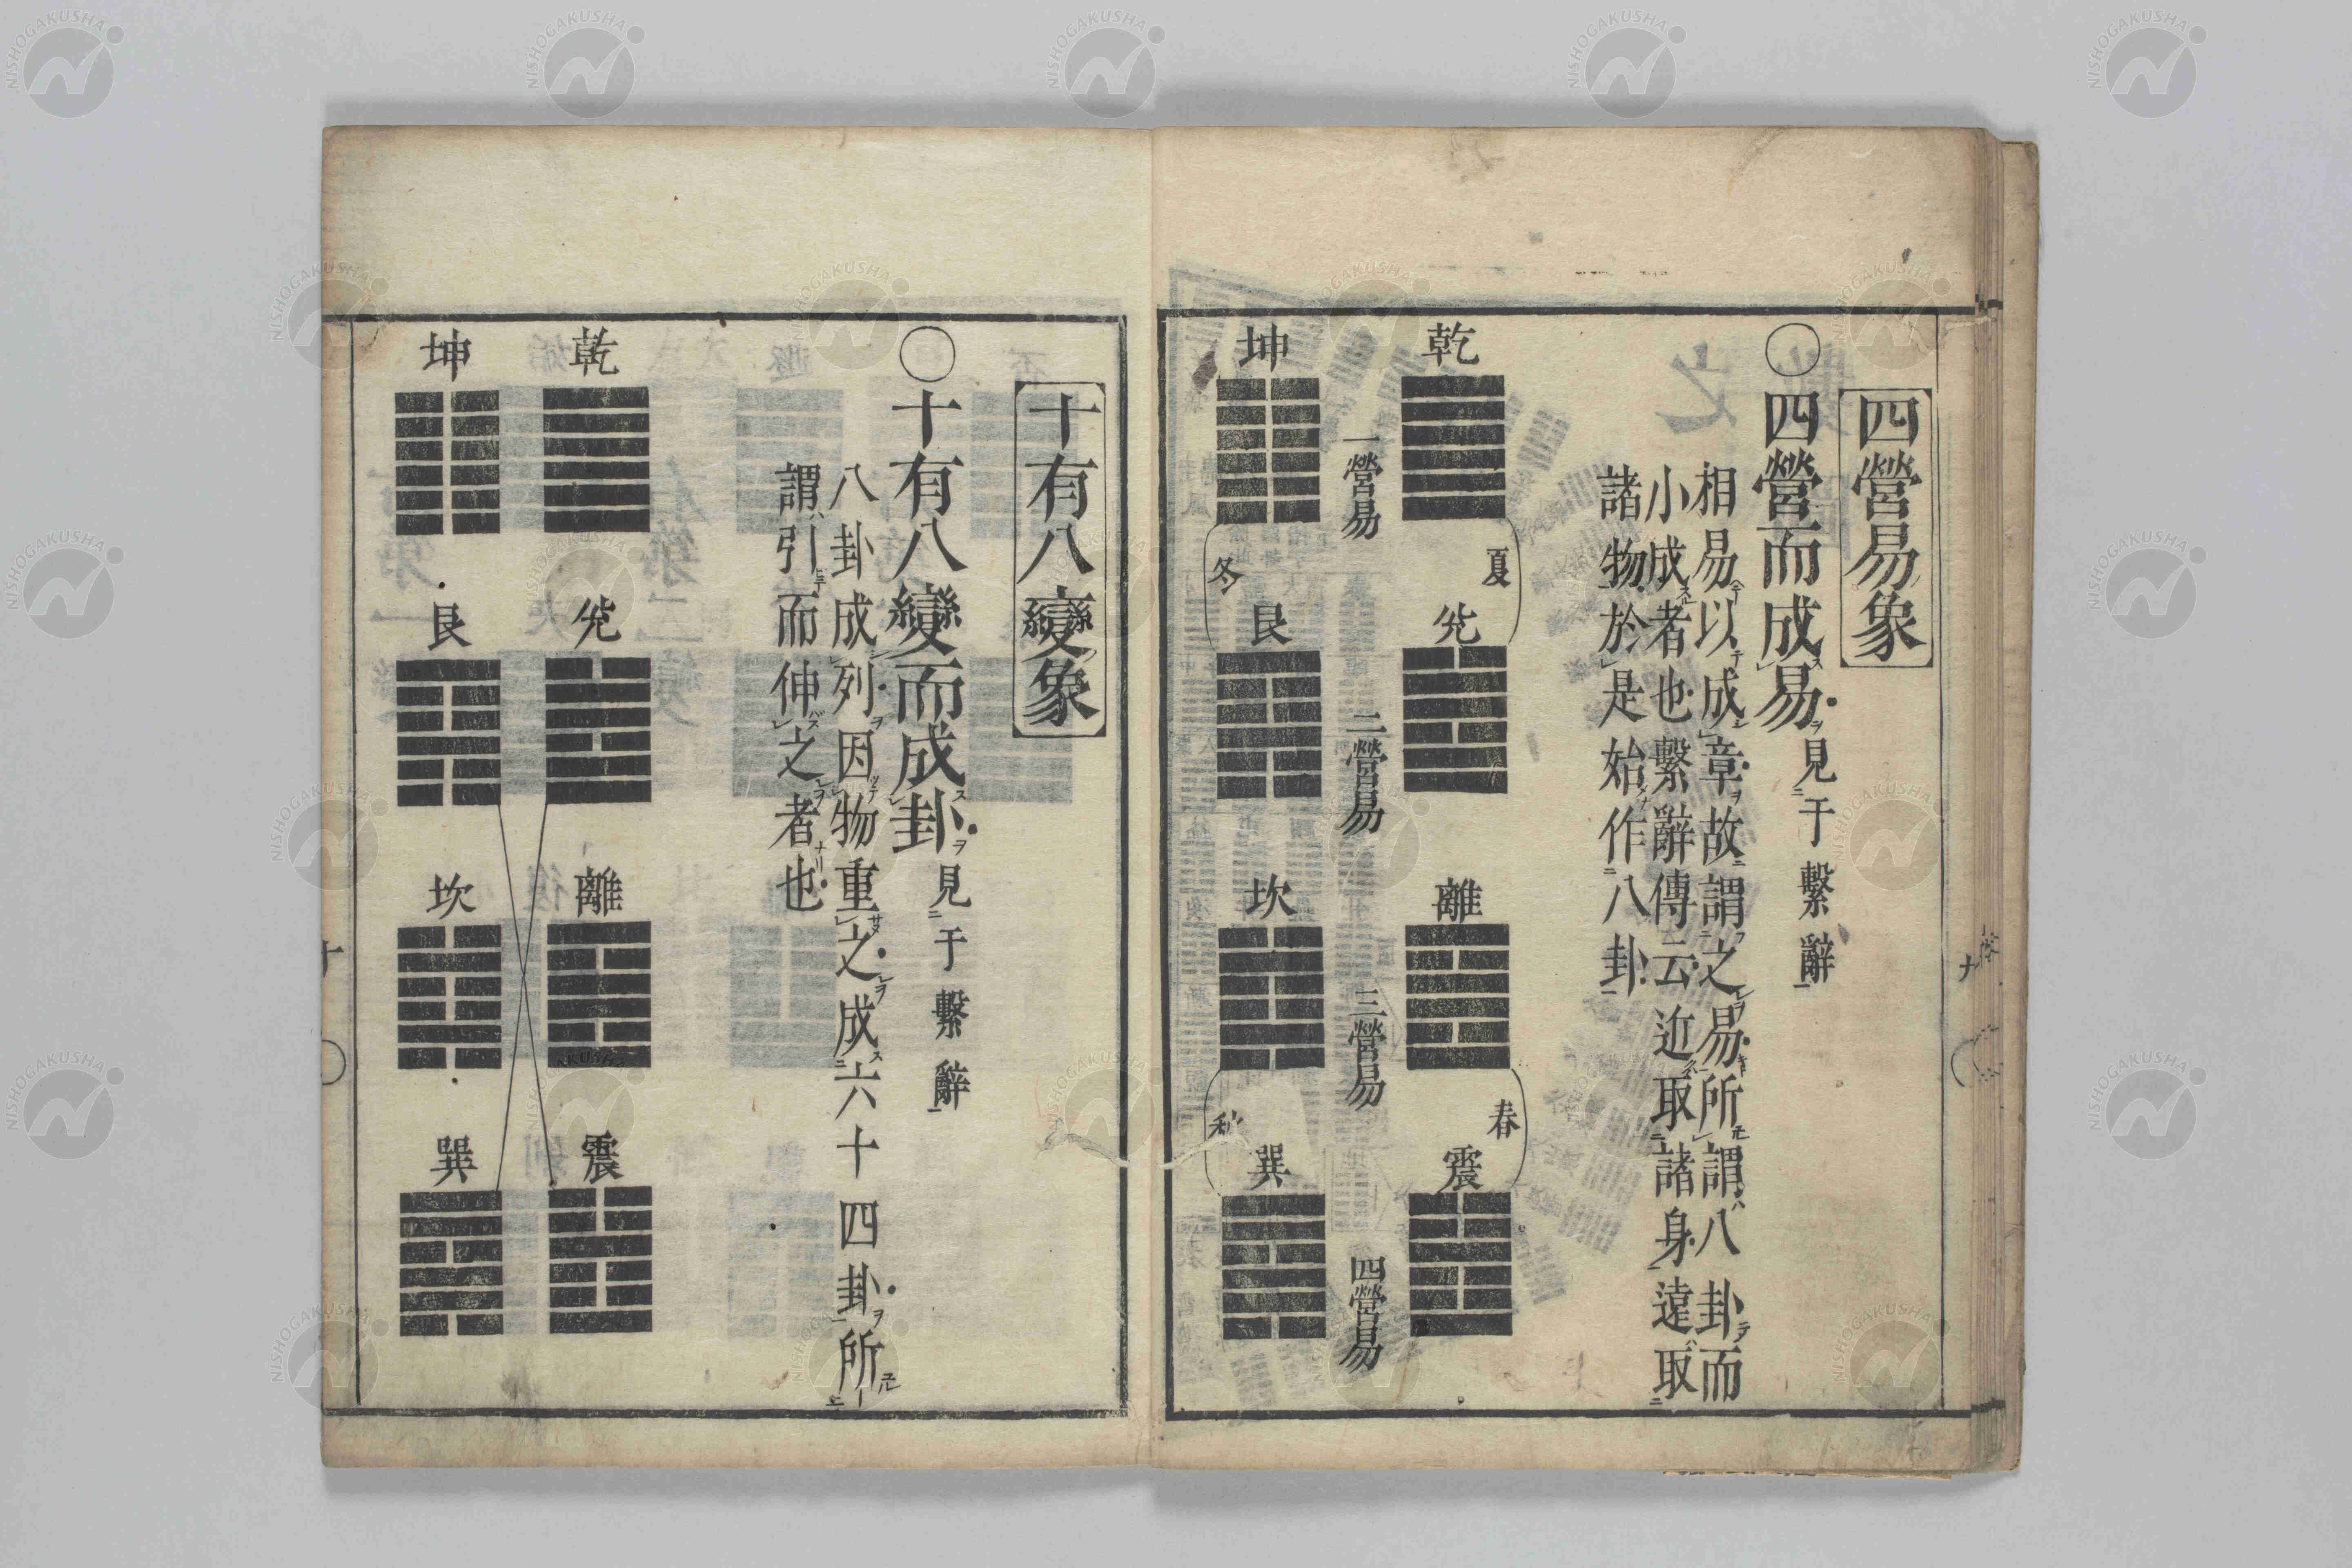 四營易象
○四營而成易見于繫辭
相易以成章故謂之易所謂八卦而
小成者也繫辭傳云近取諸身遠取
諸物於是始作八卦
乾 兊 離 震
夏 春
一營易 二營易 三營易 四營易
坤 艮 坎 巽
冬 秋
十有八變象
○十有八變而成卦見于繫辭
八卦成列因物重之成六十四卦所
謂引而伸之者也
乾 兊 離 震
坤 艮 坎 巽
十
NISHOGAKUSHA